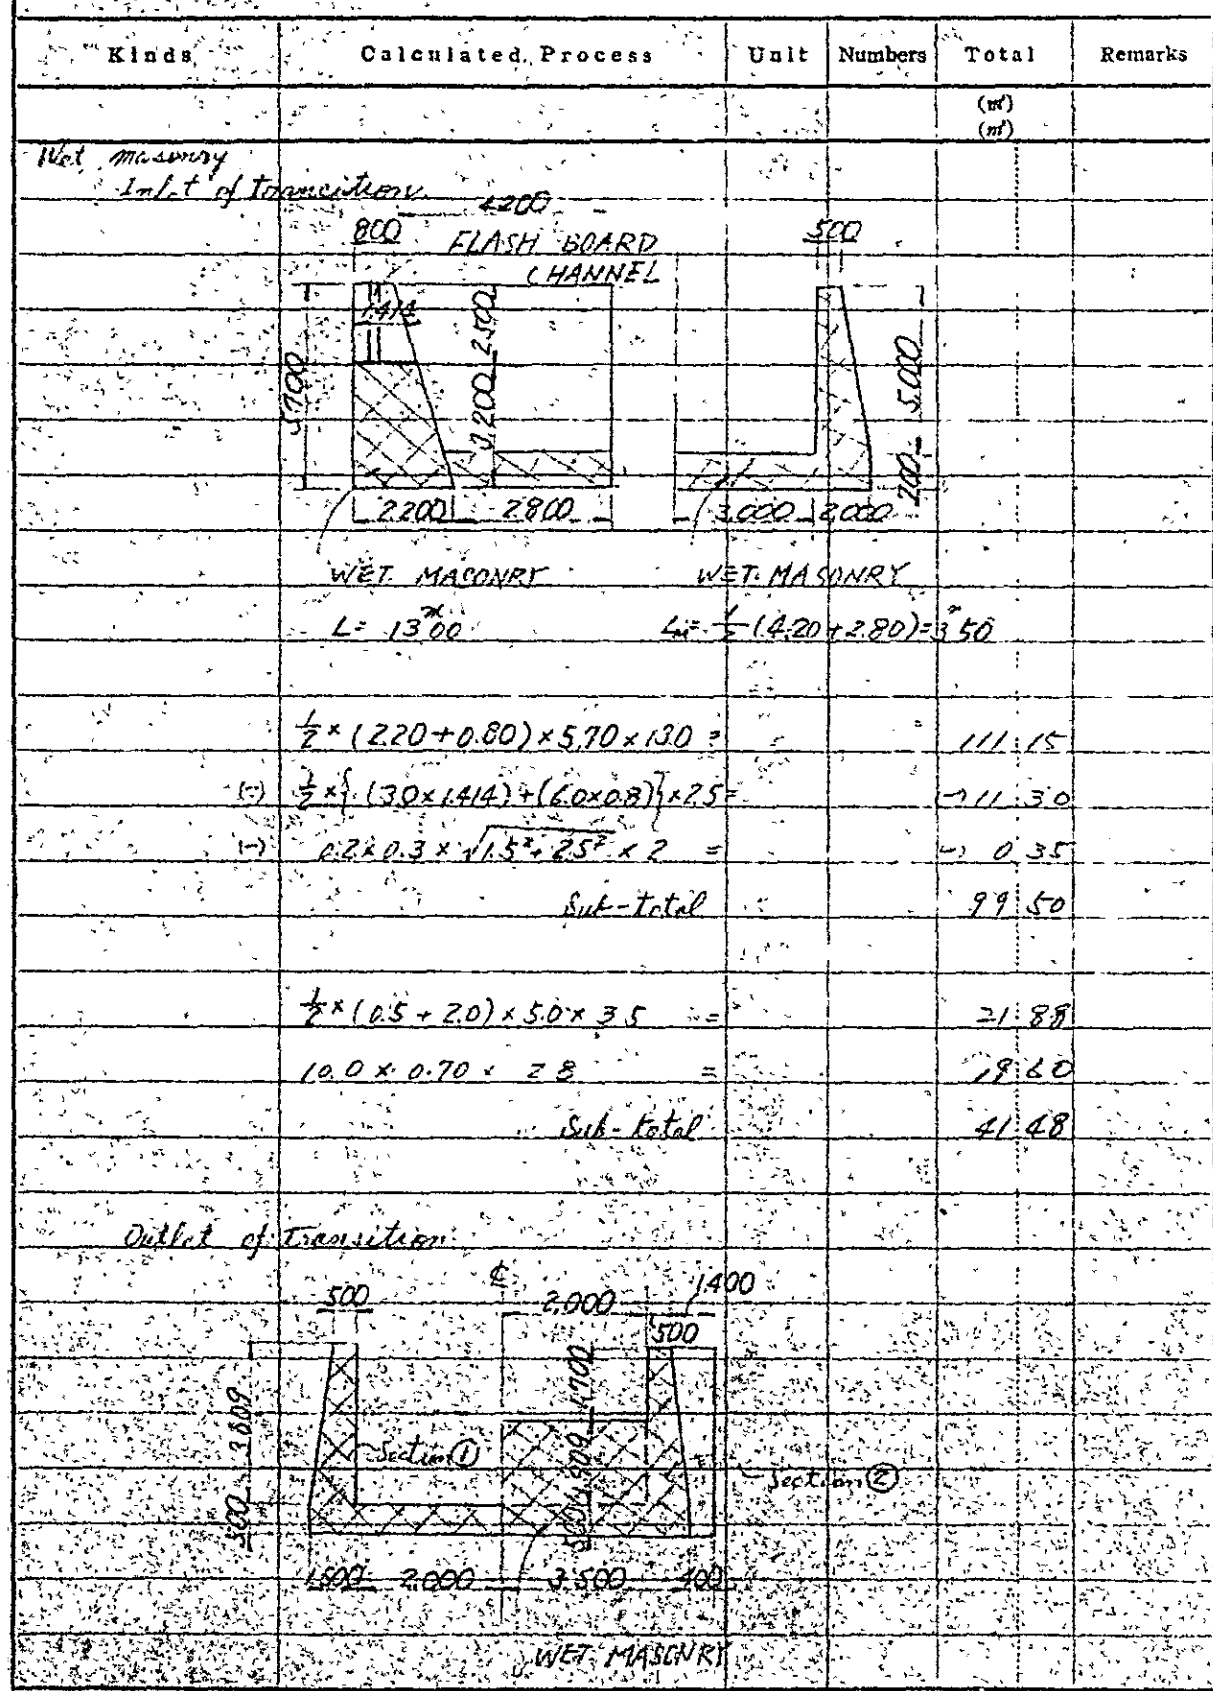 Kinds Calculated Process Unit Numbers Total Remarks
(m³)
(m²)
Wet masonry
Inlet of trancition
4200
800 FLASH BOARD 500
CHANNEL
1.414
5.700 3.200 2.500 5.000
700
2200 2800 3.000 2000
WET MASONRY WET MASONRY
L= 13.00 m LM= 1/2 (4.20+2.80)=3.50 m
1/2 × (2.20+0.80) × 5.70 × 13.0 = 111.15
(-) 1/2 × {(3.0×1.414)+(6.0×0.8)}×2.5= (-) 11.30
(-) 0.2×0.3×√1.5²+2.5² × 2 = (-) 0.35
Sub-total 99.50
1/2 × (0.5 + 2.0) × 5.0 × 3.5 = 21.88
10.0 × 0.70 × 2.8 = 19.60
Sub-total 41.48
Outlet of Transition
500 ℄ 2.000 1.400
500
3.609 1.700
Section ① 1.909 Section ②
500 500
1.500 2.000 3.500 400
WET MASONRY